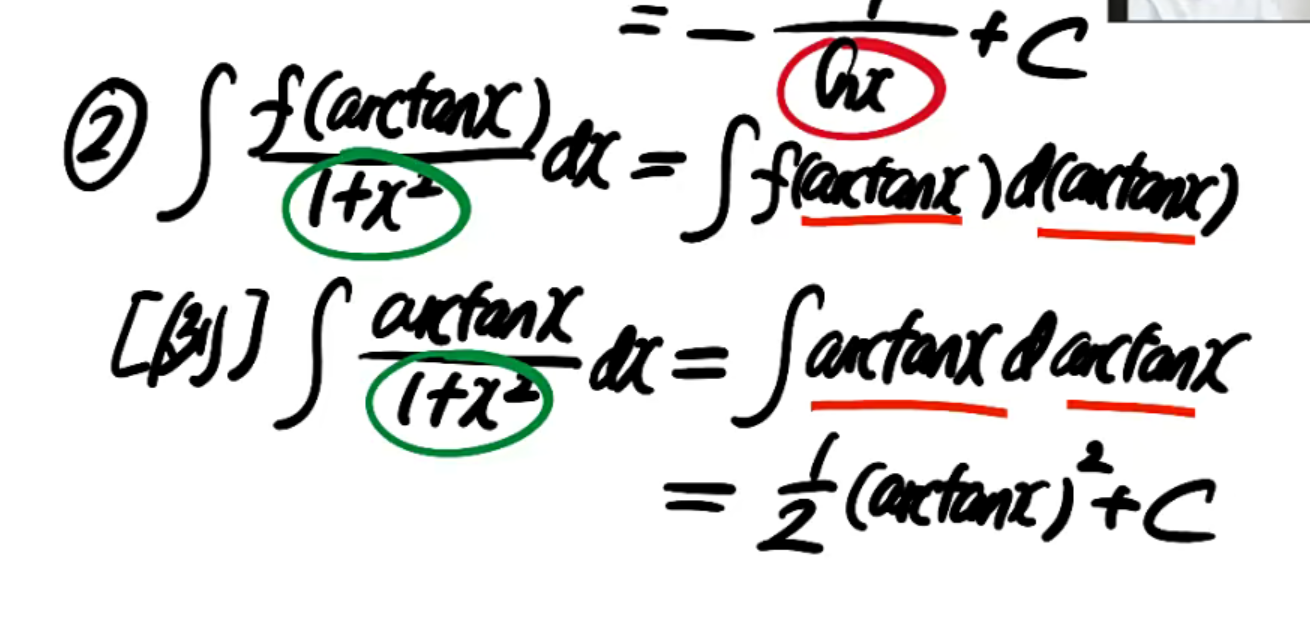 = - 1/lnx + C
② ∫ f(arctanx)/(1+x²) dx = ∫ f(arctanx) d(arctanx)
[例] ∫ arctanx/(1+x²) dx = ∫ arctanx d arctanx
= 1/2 (arctanx)² + C